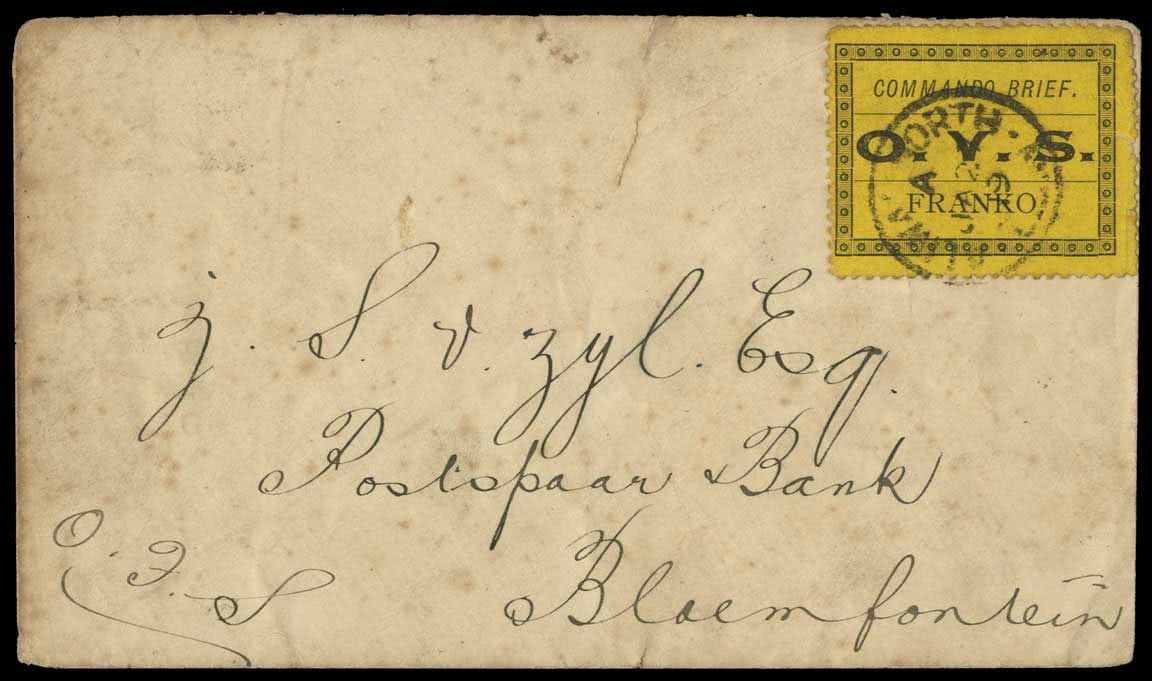 COMMANDO BRIEF.
O. V. S.
FRANKO
NORTH
A
J. S. v. Zyl. Esq.
Postspaar Bank
O. F. S
Bloemfontein